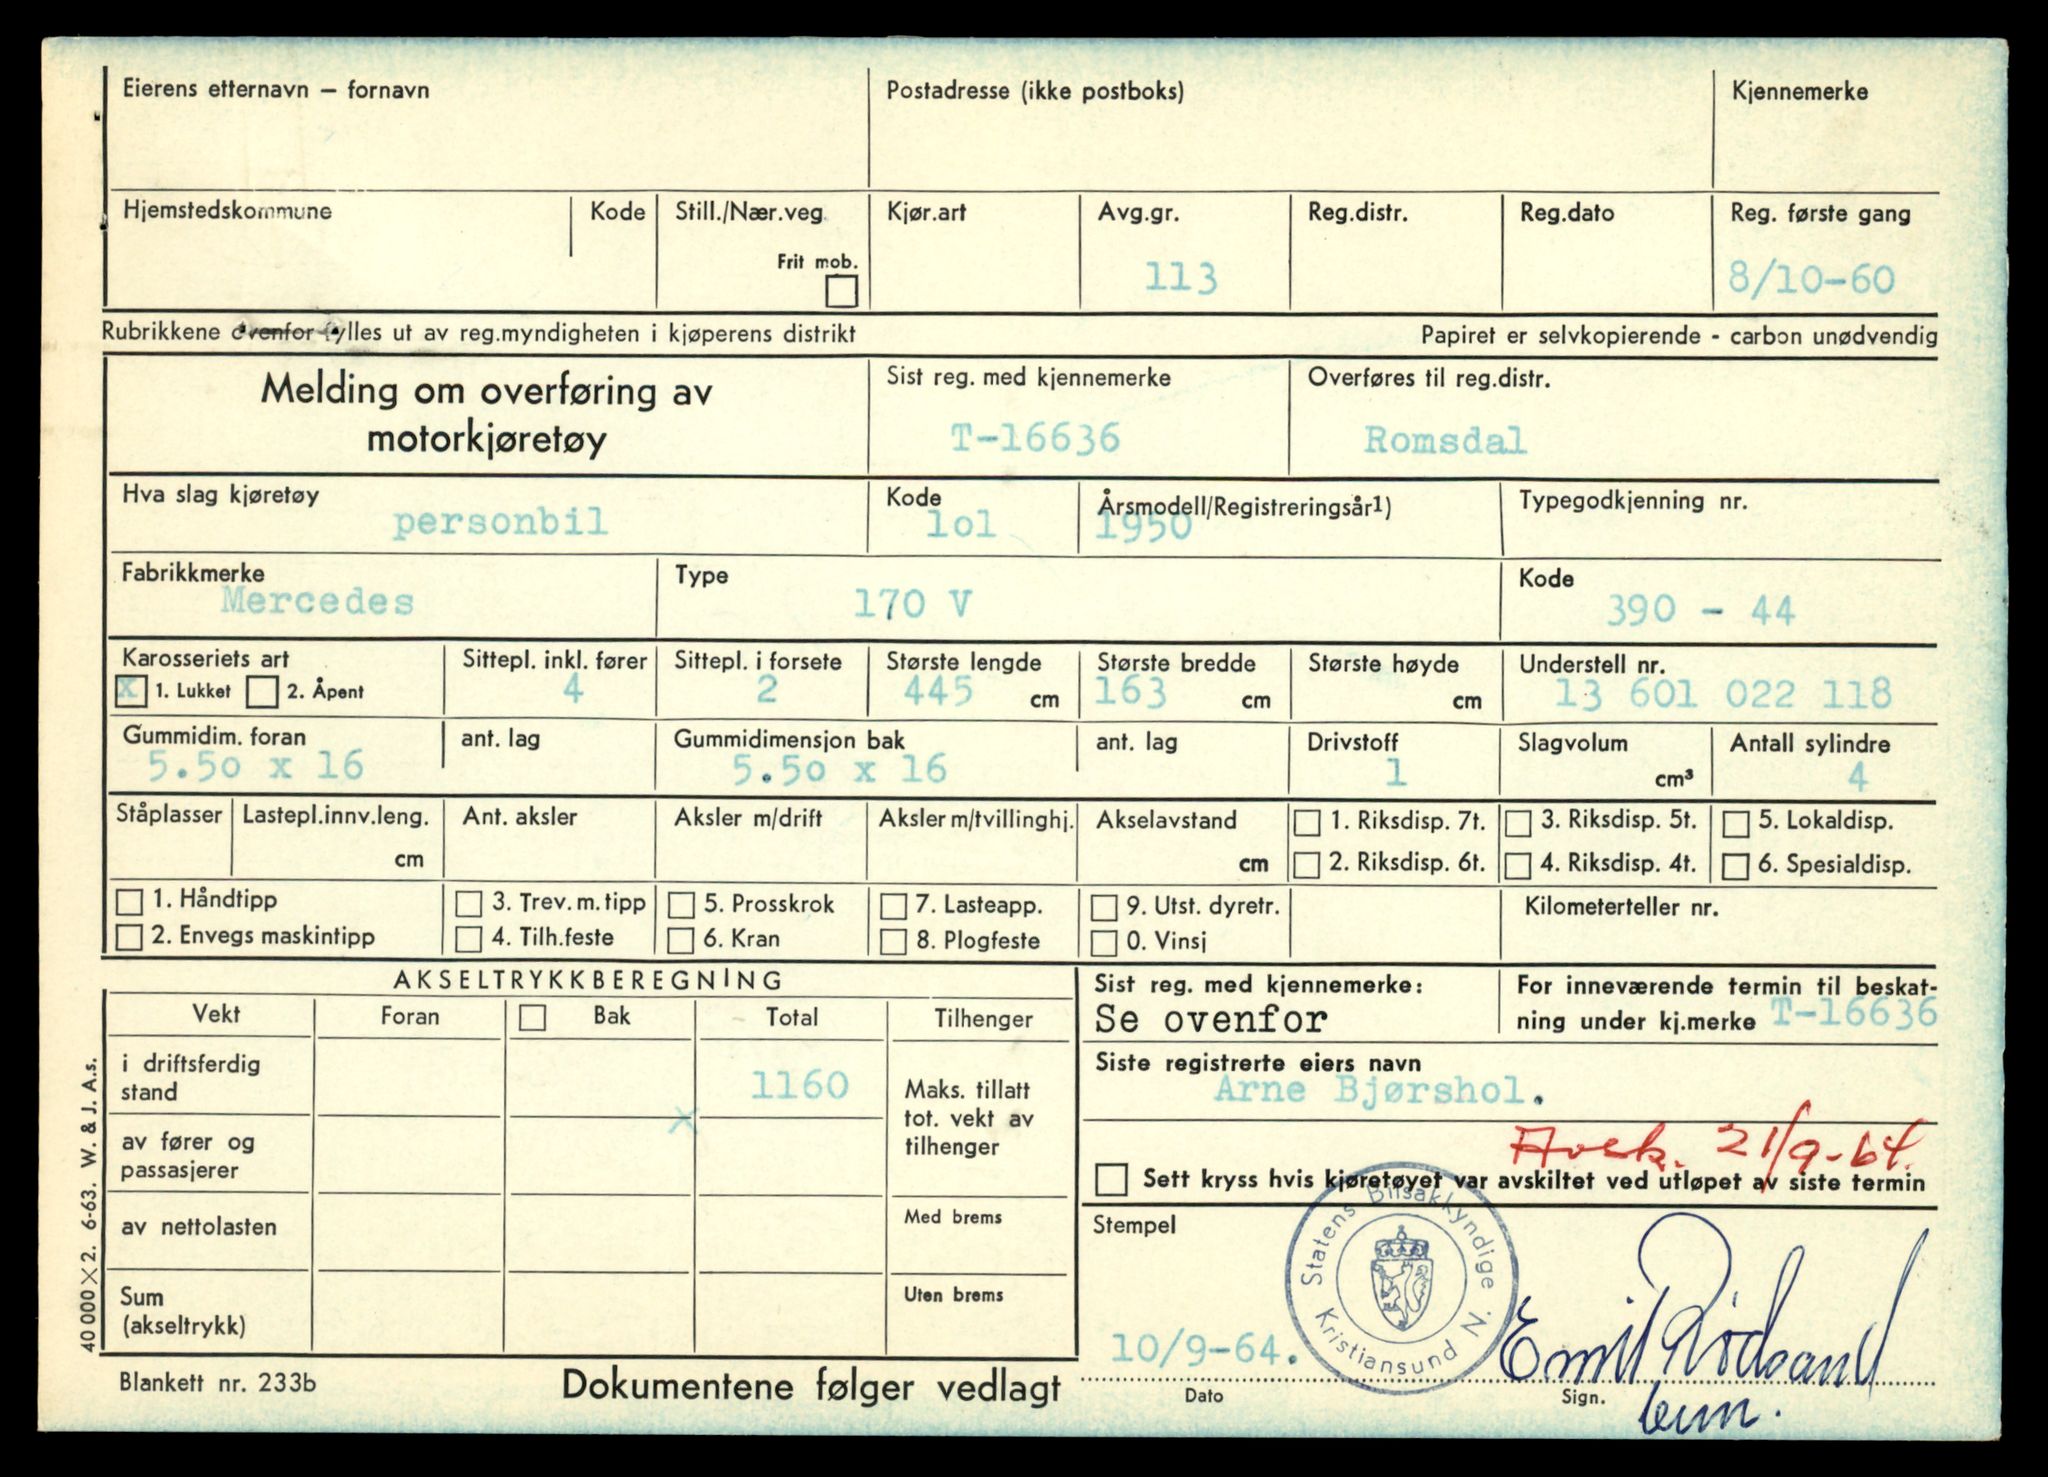 Eierens etternavn – fornavn
Postadresse (ikke postboks)
Kjennemerke
Hjemstedskommune
Kode
Still./Nær.veg
Frit mob.
Kjør.art
Avg.gr.
113
Reg.distr.
Reg.dato
Reg. første gang
8/10-60
Rubrikkene ovenfor fylles ut av reg.myndigheten i kjøperens distrikt
Papiret er selvkopierende - carbon unødvendig
Melding om overføring av
motorkjøretøy
Sist reg. med kjennemerke
T-16636
Overføres til reg.distr.
Romsdal
Hva slag kjøretøy
personbil
Kode
lol
Årsmodell/Registreringsår1)
1950
Typegodkjenning nr.
Fabrikkmerke
Mercedes
Type
170 V
Kode
390 - 44
Karosseriets art
x 1. Lukket 2. Åpent
Sittepl. inkl. fører
4
Sittepl. i forsete
2
Største lengde
445 cm
Største bredde
163 cm
Største høyde
cm
Understell nr.
13 601 022 118
Gummidim. foran
5.50 x 16
ant. lag
Gummidimensjon bak
5.50 x 16
ant. lag
Drivstoff
1
Slagvolum
cm³
Antall sylindre
4
Ståplasser
Lastepl.innv.leng.
cm
Ant. aksler
Aksler m/drift
Aksler m/tvillinghj.
Akselavstand
cm
1. Riksdisp. 7t.
2. Riksdisp. 6t.
3. Riksdisp. 5t.
4. Riksdisp. 4t.
5. Lokaldisp.
6. Spesialdisp.
1. Håndtipp
2. Envegs maskintipp
3. Trev. m. tipp
4. Tilh.feste
5. Prosskrok
6. Kran
7. Lasteapp.
8. Plogfeste
9. Utst. dyretr.
0. Vinsj
Kilometerteller nr.
AKSELTRYKKBEREGNING
Vekt
Foran
Bak
Total
Tilhenger
i driftsferdig
stand
1160
x
av fører og
passasjerer
av nettolasten
Sum
(akseltrykk)
Maks. tillatt
tot. vekt av
tilhenger
Med brems
Uten brems
Sist reg. med kjennemerke:
Se ovenfor
For inneværende termin til beskat-
ning under kj.merke T-16636
Siste registrerte eiers navn
Arne Bjørshol.
21/9-64.
Sett kryss hvis kjøretøyet var avskiltet ved utløpet av siste termin
Stempel
Statens Bilsakkyndige
Kristiansund N.
10/9-64.
Dato
Emil Rødsand
Sign.
Blankett nr. 233b
Dokumentene følger vedlagt
40 000 × 2. 6-63. W. & J. A.s.